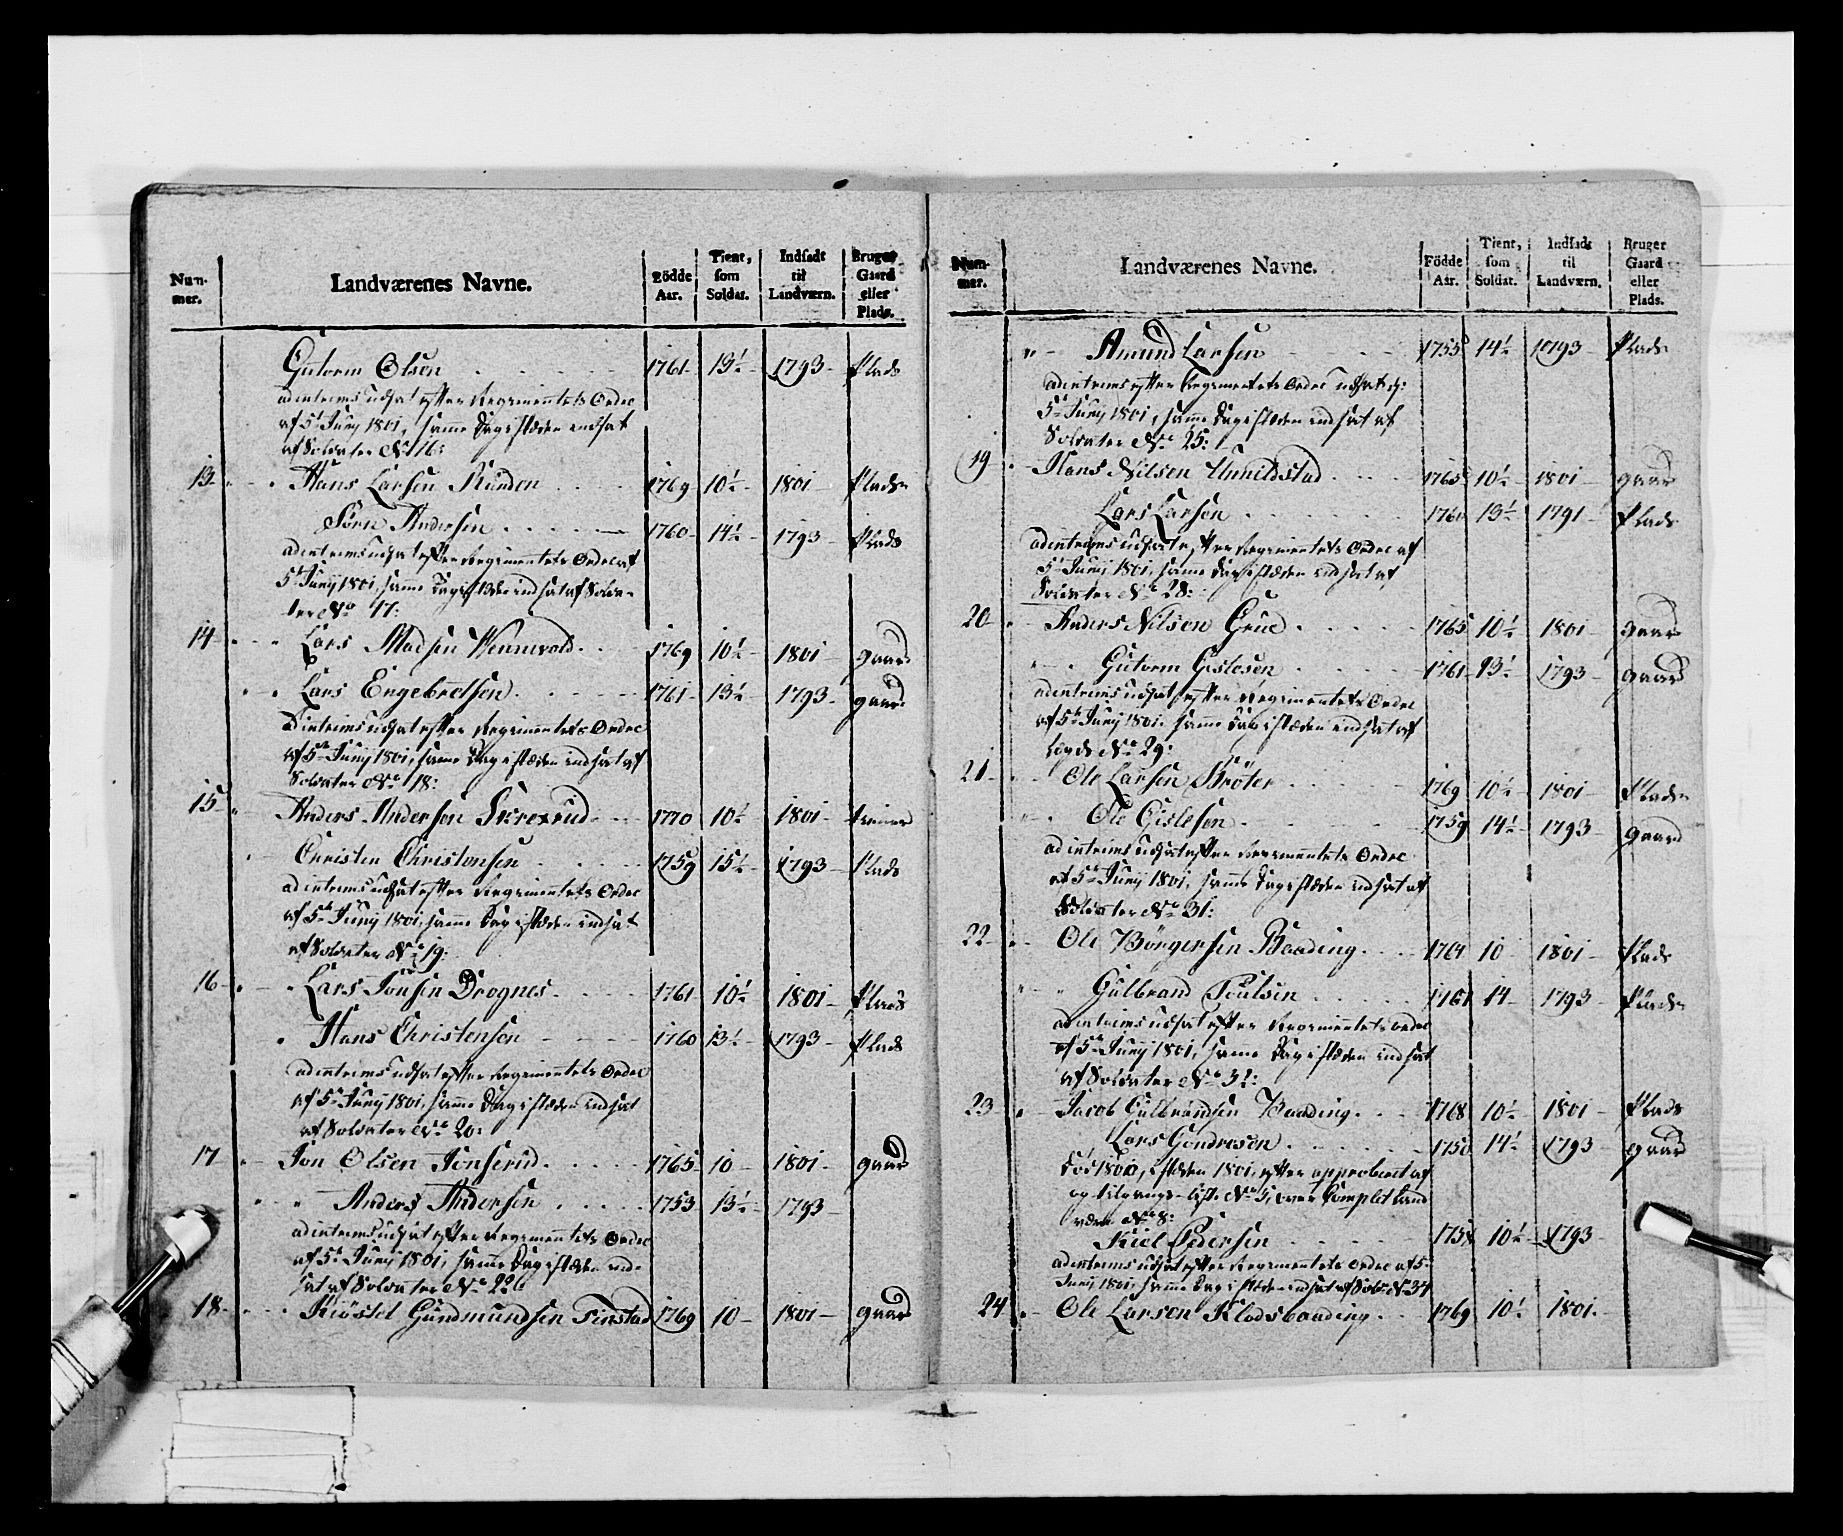 Num-
mer.
Landværenes Navne.
Födde
Aar.
Tient,
som
Soldat.
Indsadt
til
Landværn.
Bruger
Gaard
eller
Plads.
Gutorm Olsen 1761 13½ 1793 Plads
ad interims udsat efter Regimentets Ordre
af 5te Junÿ 1801, samme Dag i stæden indsat
af Soldater No 16:
13 Hans Larsen Runden 1769 10½ 1801 Plads
Sören Andersen 1760 14½ 1793 Plads
ad interims udsat efter Regimentets Ordre af
5te Junÿ 1801, samme Dag i stæden indsat af Solda-
ter No 17:
14 Lars Madsen Wennevold 1769 10½ 1801 gaard
Lars Engebretsen 1761 13½ 1793 gaard
ad interims udsat efter Regimentets Ordre
af 5te Junÿ 1801, samme Dag i stæden indsat af
Soldater No 18:
15 Anders Andersen 1770 10½ 1801
Christen Christensen 1759 15½ 1793 Plads
ad interims udsat efter Regimentets Ordre
af 5te Junÿ 1801, samme Dag i stæden indsat
af Soldater No 19:
16 Lars Jonsen Drognes 1761 10½ 1801 Plads
Hans Christensen 1760 13½ 1793 Plads
ad interims udsat efter Regimentets Ordre
af 5te Junÿ 1801, samme Dag i stæden indsat
af Soldater No 20:
17 Jon Olsen Jonserud 1765 10 1801 gaard
Anders Andersen 1753 13½ 1793
ad interims udsat efter Regimentets Ordre
af 5te Junÿ 1801, samme Dag i stæden ind-
sat af Soldater No 22:
18 Kiöstel Gundmundsen Finstad 1769 10 1801 gaard
Num-
mer.
Landværenes Navne.
Födde
Aar.
Tient,
som
Soldat.
Indsadt
til
Landværn.
Bruger
Gaard
eller
Plads.
Amund Larsen 1755 14½ 1793 Plads
ad interims efter Regimentets Ordre udsat
5te Junÿ 1801, samme Dag i stæden indsat af
Soldater No 25:
19 Hans Nilsen 1765 10½ 1801 gaard
Lars Larsen 13½ 1791 Plads
ad interims udsat efter Regimentets Ordre af
5te Junÿ 1801, samme Dag i stæden indsat af
Soldater No 28:
20 Anders Nilsen Grue 1765 10½ 1801 gaard
Gutorm Gislesen 1761 13½ 1793 gaard
ad interims udsat efter Regimentets Ordre
af 5te Junÿ 1801, samme Dag i stæden indsat af
No 29:
21 Ole Larsen Bröter 1769 10½ 1801 Plads
Ole Gislesen 1759 14½ 1793 gaard
ad interims udsat efter Regimentets Ordre
af 5te Junÿ 1801, samme Dag i stæden indsat af
Soldater No 31:
22 Ole Börgersen Baading 10 1801 Plads
Gulbrand Poulsen 14 1793 Plads
ad interims udsat efter Regimentets Ordre
af 5te Junÿ 1801, samme Dag i stæden indsat
af Soldater No 32:
23 Jacob Gulbrandsen Baading 1768 10½ 1801 Plads
Lars Gundresen 1750 14½ 1793 gaard
Död 1800, i stæden 1801, efter approberet af
og tilgangs-Liste No 5, over Complet Land
værn No 8:
Kiel Pedersen 10½ 1793
ad interims udsat efter Regimentets Ordre af 5te
Junÿ 1801, samme Dag i stæden indsat af Sold: No 34
24 Ole Larsen Klodsbaading 1769 10½ 1801